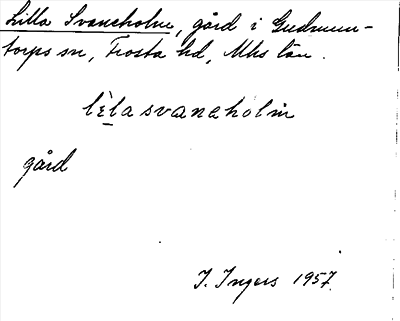 Lilla Svaneholm, gård i Gudmun-
torps sn, Frosta hd, Mhs län.
lìlasvanəhòlm
gård
I. Ingers 1957.